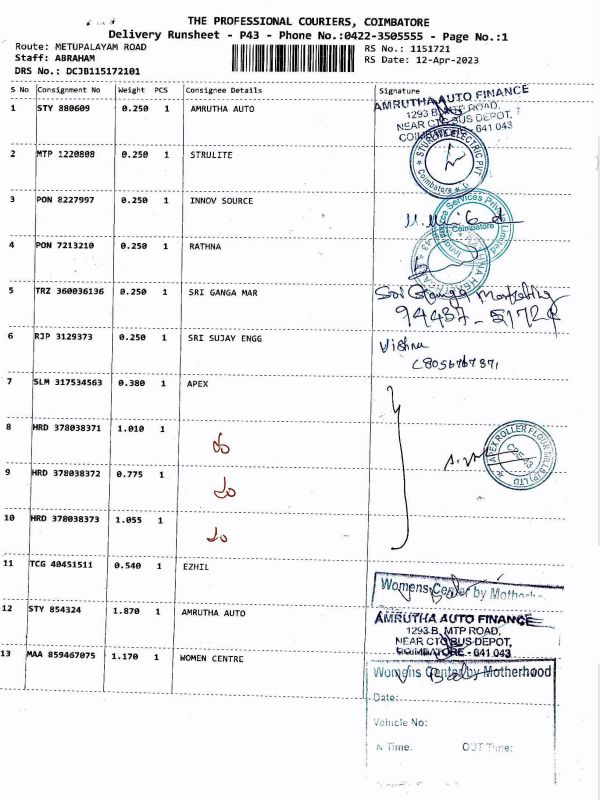 THE PROFESSIONAL COURIERS, COIMBATORE
Delivery Runsheet - P43 - Phone No.:0422-3505555 - Page No.:1
Route: METUPALAYAM ROAD RS No.: 1151721
Staff: ABRAHAM RS Date: 12-Apr-2023
DRS No.: DCJB115172101
S No Consignment No Weight PCS Consignee Details Signature
1 STY 880609 0.250 1 AMRUTHA AUTO
AMRUTHA AUTO FINANCE
1293 B, MTP ROAD,
NEAR CTC BUS DEPOT,
COIMBATORE - 641 043
2 MTP 1220808 0.250 1 STRULITE
ELECTRIC PVT
Coimbatore
3 PON 8227997 0.250 1 INNOV SOURCE
Services Private Limited
Coimbatore
4 PON 7213210 0.250 1 RATHNA
5 TRZ 360036136 0.250 1 SRI GANGA MAR
Sri Ganga Marketing
94437-51724
6 RJP 3129373 0.250 1 SRI SUJAY ENGG
Vishnu
7 SLM 317534563 0.380 1 APEX
8 HRD 378038371 1.010 1 do
APEX ROLLER FLOUR MILLS (P) LTD
CBE-43
9 HRD 378038372 0.775 1 do
10 HRD 378038373 1.055 1 do
11 TCG 40451511 0.540 1 EZHIL
Womens Center by Motherho
12 STY 854324 1.870 1 AMRUTHA AUTO
AMRUTHA AUTO FINANCE
1293 B, MTP ROAD,
NEAR CTC BUS DEPOT,
COIMBATORE - 641 043
13 MAA 859467075 1.170 1 WOMEN CENTRE
Womens Center by Motherhood
Date:
Vehicle No:
In Time: OUT Time: